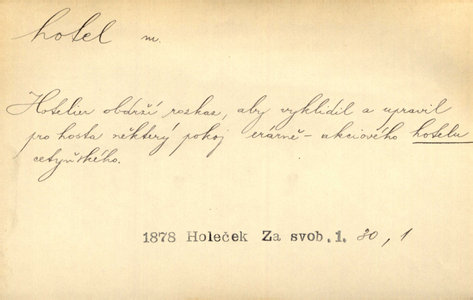 hotel m.
Hotelier obdrží rozkaz, aby vyklidil a upravil
pro hosta některý pokoj erárně-akciového hotelu
cetyňského.
1878 Holeček Za svob. 1. 80, 1